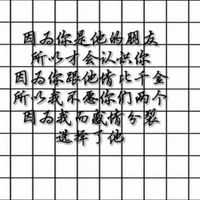 因为你是他的朋友
所以才会认识你
因为你跟他情比千金
所以我不愿你们两个
因为我而感情分裂
选择了他